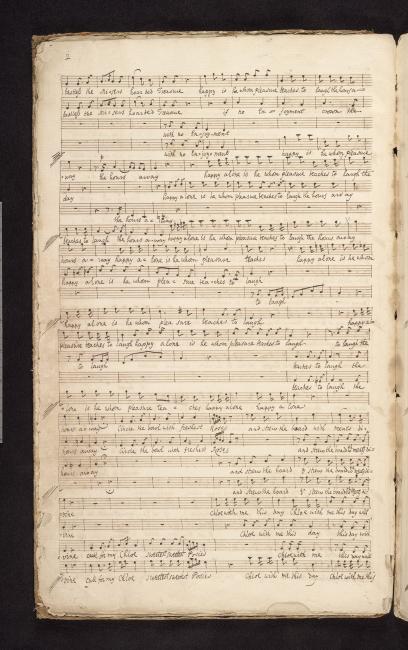 2
the misers hoarded Treasure happy is he whom pleasure teaches to laugh the hours a
the misers hoarded Treasure if no enjoyment crown the
with no enjoyment
with no enjoyment happy is he whom pleasure
way the hours away happy alone is he whom pleasure teaches to laugh the
day happy alone is he whom pleasure teaches to laugh the hours away
the hours away
teaches to laugh the hours away happy alone is he whom pleasure teaches to laugh the hours away
hours away happy alone is he whom pleasure teaches happy alone is he whom
happy alone is he whom pleasure teaches to laugh
to laugh
happy alone is he whom pleasure teaches to laugh happy a
pleasure teaches to laugh happy alone is he whom pleasure teaches to laugh to laugh the
to laugh teaches to laugh the
teaches to laugh the
lone is he whom pleasure teaches happy alone happy alone
hours away Circle the bowl with freshest Roses and strew the board with
hours away Circle the bowl with freshest Roses and strew the board
hours away and strew the board & strew the board
and strew the board & strew the board
vine Chloe with me this day Chloe with me this day will
vine Chloe with me this day this day will
vine call for my Chloe sweetest sweetest Posies Chloe with me this day will
vine call for my Chloe sweetest sweetest Posies Chloe with me this day Chloe with me this